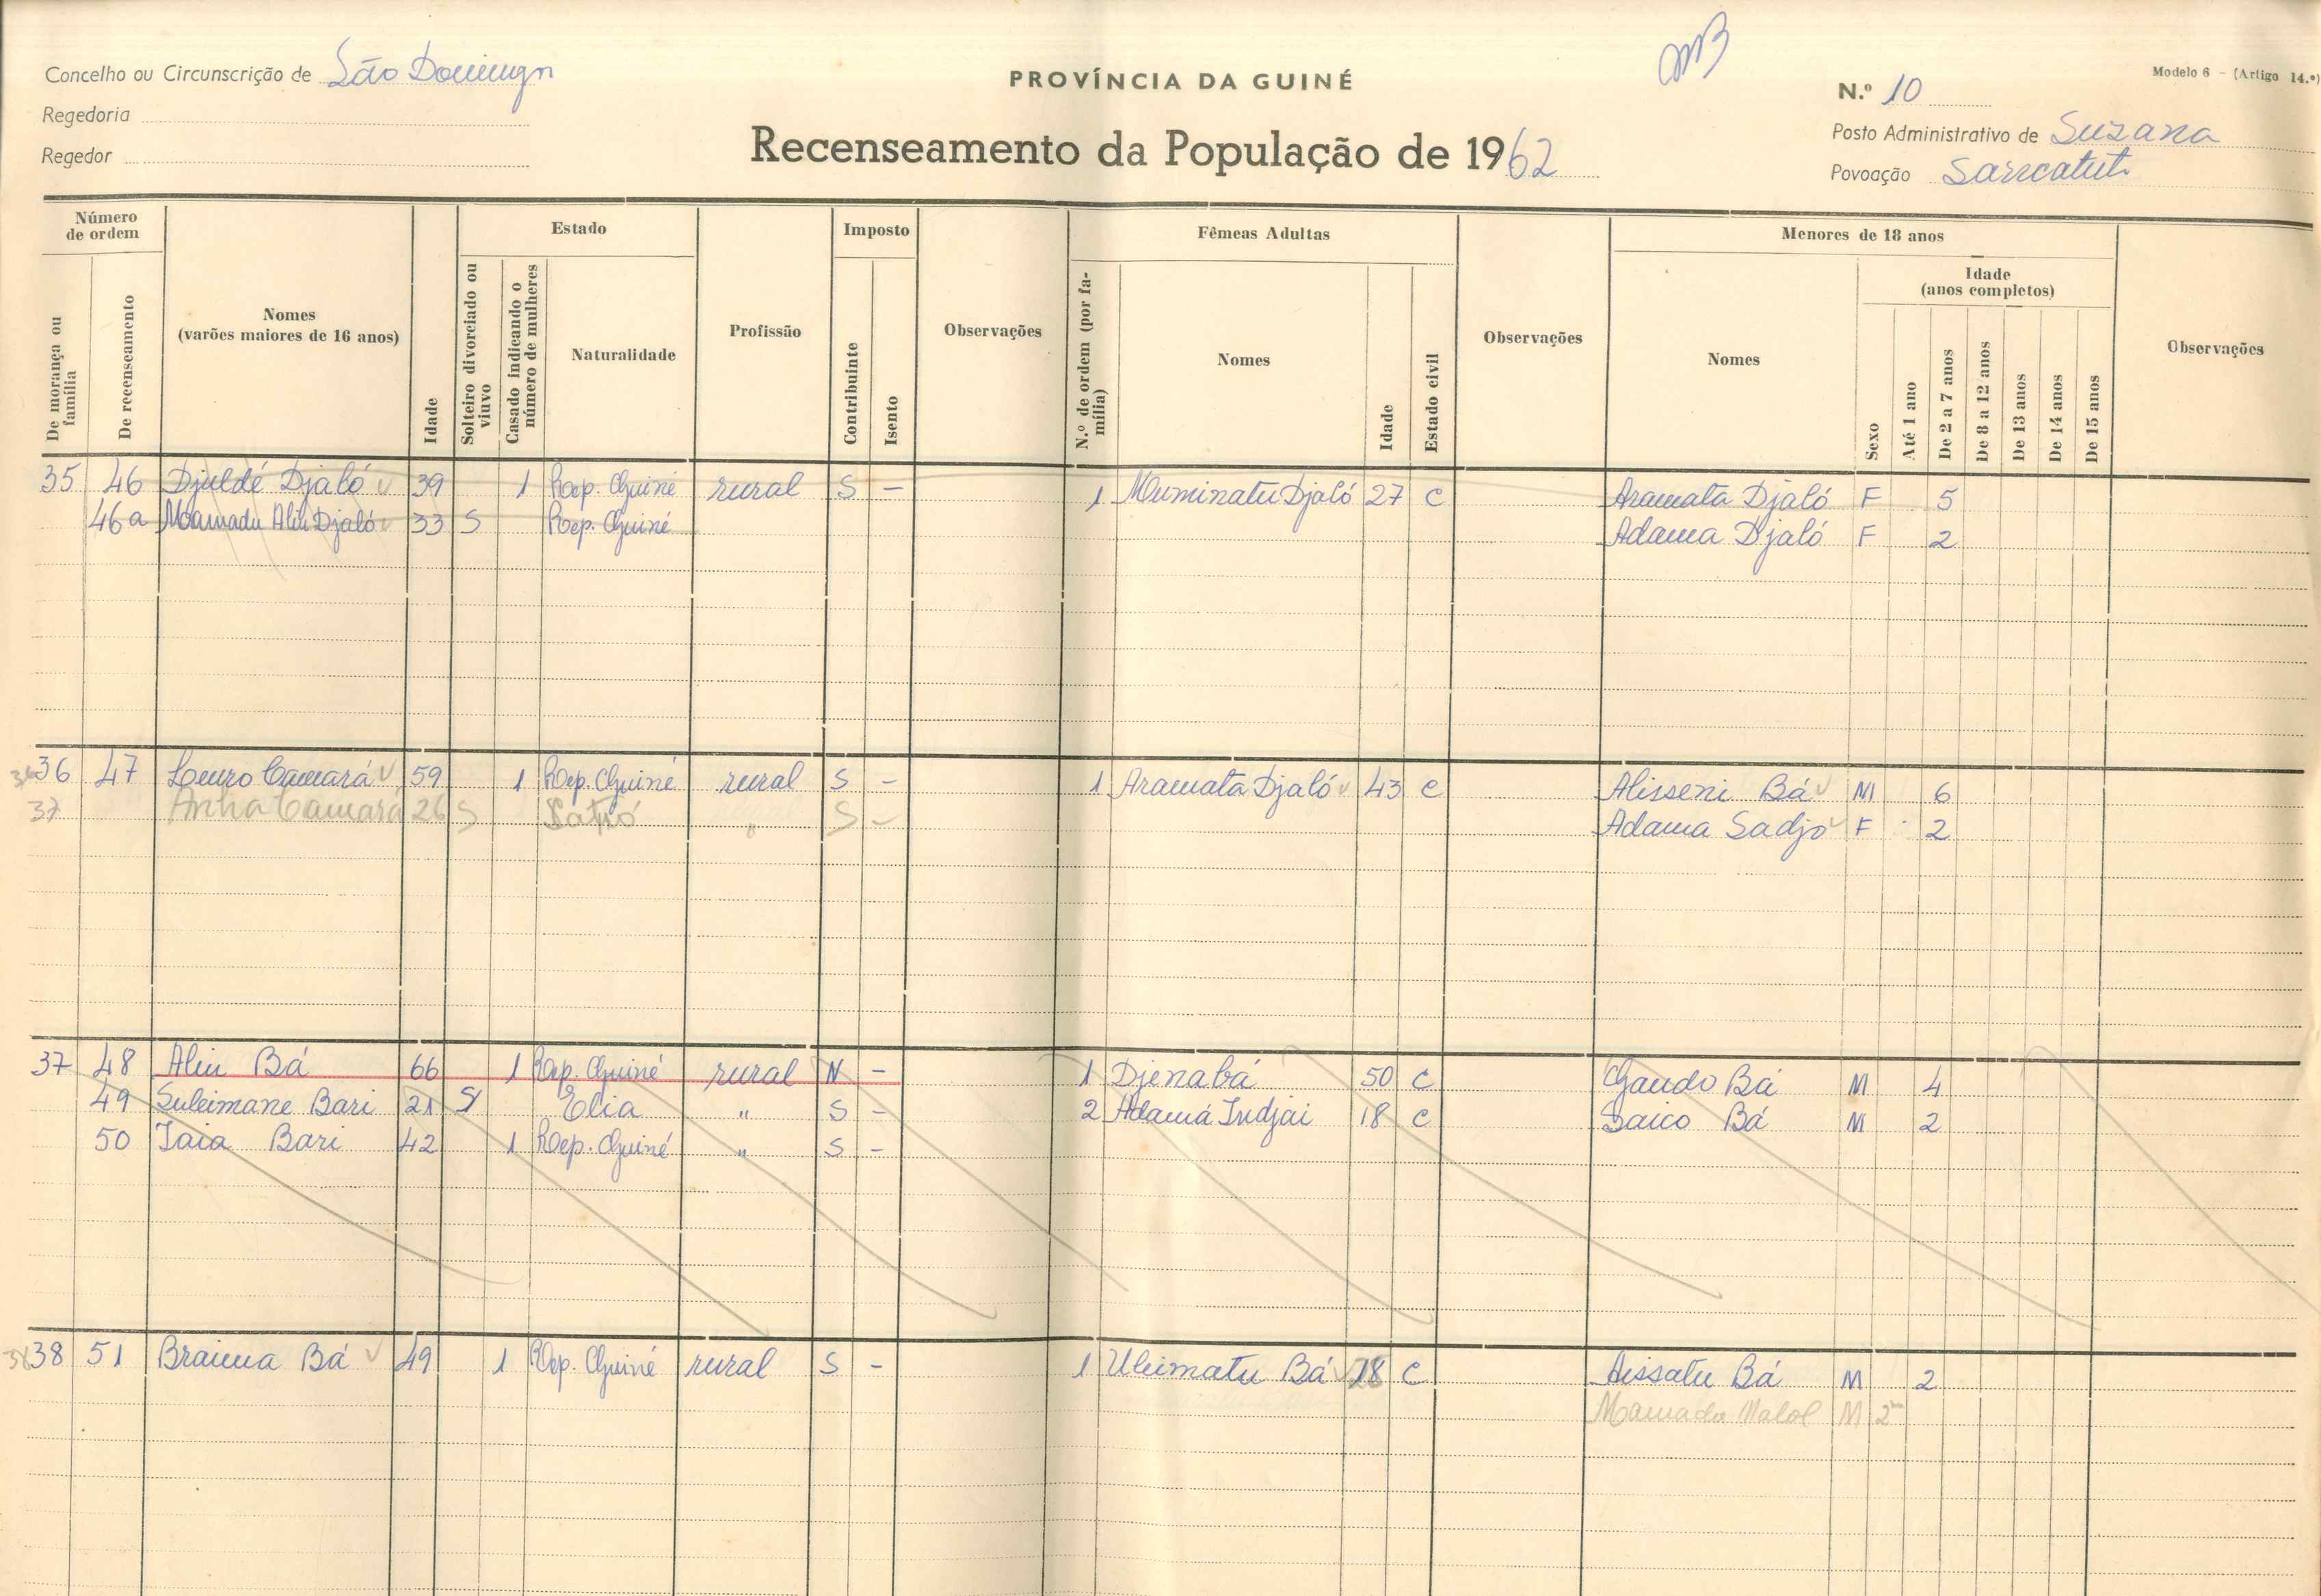 Concelho ou Circunscrição de São Domingos
Regedoria
Regedor
PROVÍNCIA DA GUINÉ
Recenseamento da População de 1962
Modelo 6 - (Artigo 14.º)
N.º 10
Posto Administrativo de Suzana
Povoação
Número de ordem
De morança ou família
De recenseamento
Nomes
(varões maiores de 16 anos)
Idade
Estado
Solteiro divorciado ou viuvo
Casado indicando o número de mulheres
Naturalidade
Profissão
Imposto
Contribuinte
Isento
Observações
Fêmeas Adultas
N.º de ordem (por família)
Nomes
Idade
Estado civil
Observações
Menores de 18 anos
Nomes
Sexo
Idade
(anos completos)
Até 1 ano
De 2 a 7 anos
De 8 a 12 anos
De 13 anos
De 14 anos
De 15 anos
Observações
35 46 Djuldé Djaló 39 1 Rep. Guiné rural S - 1 Muminatu Djaló 27 C Aramata Djaló F 5
46a Mamadu Aliu Djaló 33 S Rep. Guiné Adama Djaló F 2
36 36 47 Camará 59 1 Rep. Guiné rural S - 1 Aramata Djaló 43 C Alisseni Bá M 6
37 Camará 26 S " S - Adama Sadjo F 2
37 48 Aliu Bá 66 1 Rep. Guiné rural N - 1 Djenabá 50 C Gaudo Bá M 4
49 Suleimane Bari 21 S Elia " S - 2 Adamá Indjai 18 C Saico Bá M 2
50 Iaia Bari 42 1 Rep. Guiné " S -
38 38 51 Braima Bá 49 1 Rep. Guiné rural S - 1 Ulimatu Bá 18 28 C Aissatu Bá M 2
Mamadu M 2